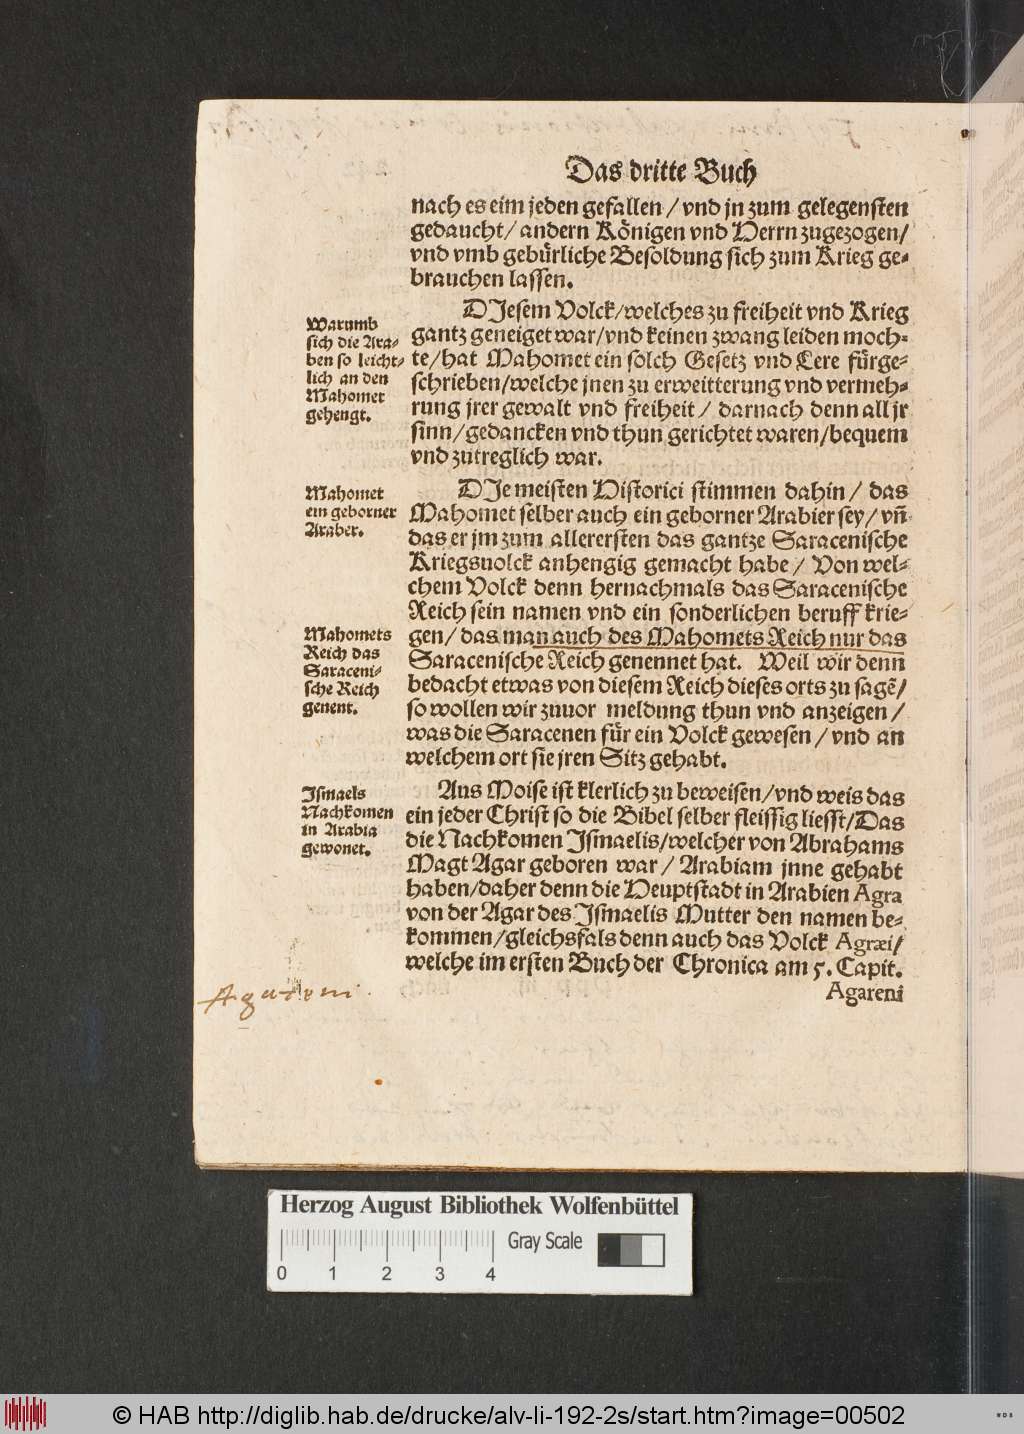 Das dritte Buch
nach es eim jeden gefallen / vnd jn zum gelegensten
gedaucht / andern Königen vnd Herrn zugezogen /
vnd vmb gebürliche Besoldung sich zum Krieg ge-
brauchen lassen.
Warumb
sich die Ara-
ben so leicht-
lich an den
Mahomet
gehengt.
DJesem Volck / welches zu freiheit vnd Krieg
gantz geneiget war / vnd keinen zwang leiden moch-
te / hat Mahomet ein solch Gesetz vnd Lere fürge-
schrieben / welche jnen zu erweitterung vnd vermeh-
rung jrer gewalt vnd freiheit / darnach denn all jr
sinn / gedancken vnd thun gerichtet waren / bequem
vnd zutreglich war.
Mahomet
ein geborner
Araber.
DJe meisten Historici stimmen dahin / das
Mahomet selber auch ein geborner Arabier sey / vñ
das er jm zum allerersten das gantze Saracenische
Kriegsuolck anhengig gemacht habe / Von wel-
chem Volck denn hernachmals das Saracenische
Reich sein namen vnd ein sonderlichen beruff krie-
gen / das man auch des Mahomets Reich nur das
Saracenische Reich genennet hat. Weil wir denn
bedacht etwas von diesem Reich dieses orts zu sagẽ /
so wollen wir zuuor meldung thun vnd anzeigen /
was die Saracenen für ein Volck gewesen / vnd an
welchem ort sie jren Sitz gehabt.
Mahomets
Reich das
Saraceni-
sche Reich
genent.
Jsmaels
Nachkomen
in Arabia
gewonet.
Aus Moise ist klerlich zu beweisen / vnd weis das
ein jeder Christ so die Bibel selber fleissig liesst / Das
die Nachkomen Jsmaelis / welcher von Abrahams
Magt Agar geboren war / Arabiam jnne gehabt
haben / daher denn die Heuptstadt in Arabien Agra
von der Agar des Jsmaelis Mutter den namen be-
kommen / gleichsfals denn auch das Volck Agræi /
welche im ersten Buch der Chronica am 5. Capit.
Agareni
Agareni.
Herzog August Bibliothek Wolfenbüttel
0 1 2 3 4
Gray Scale
© HAB http://diglib.hab.de/drucke/alv-li-192-2s/start.htm?image=00502